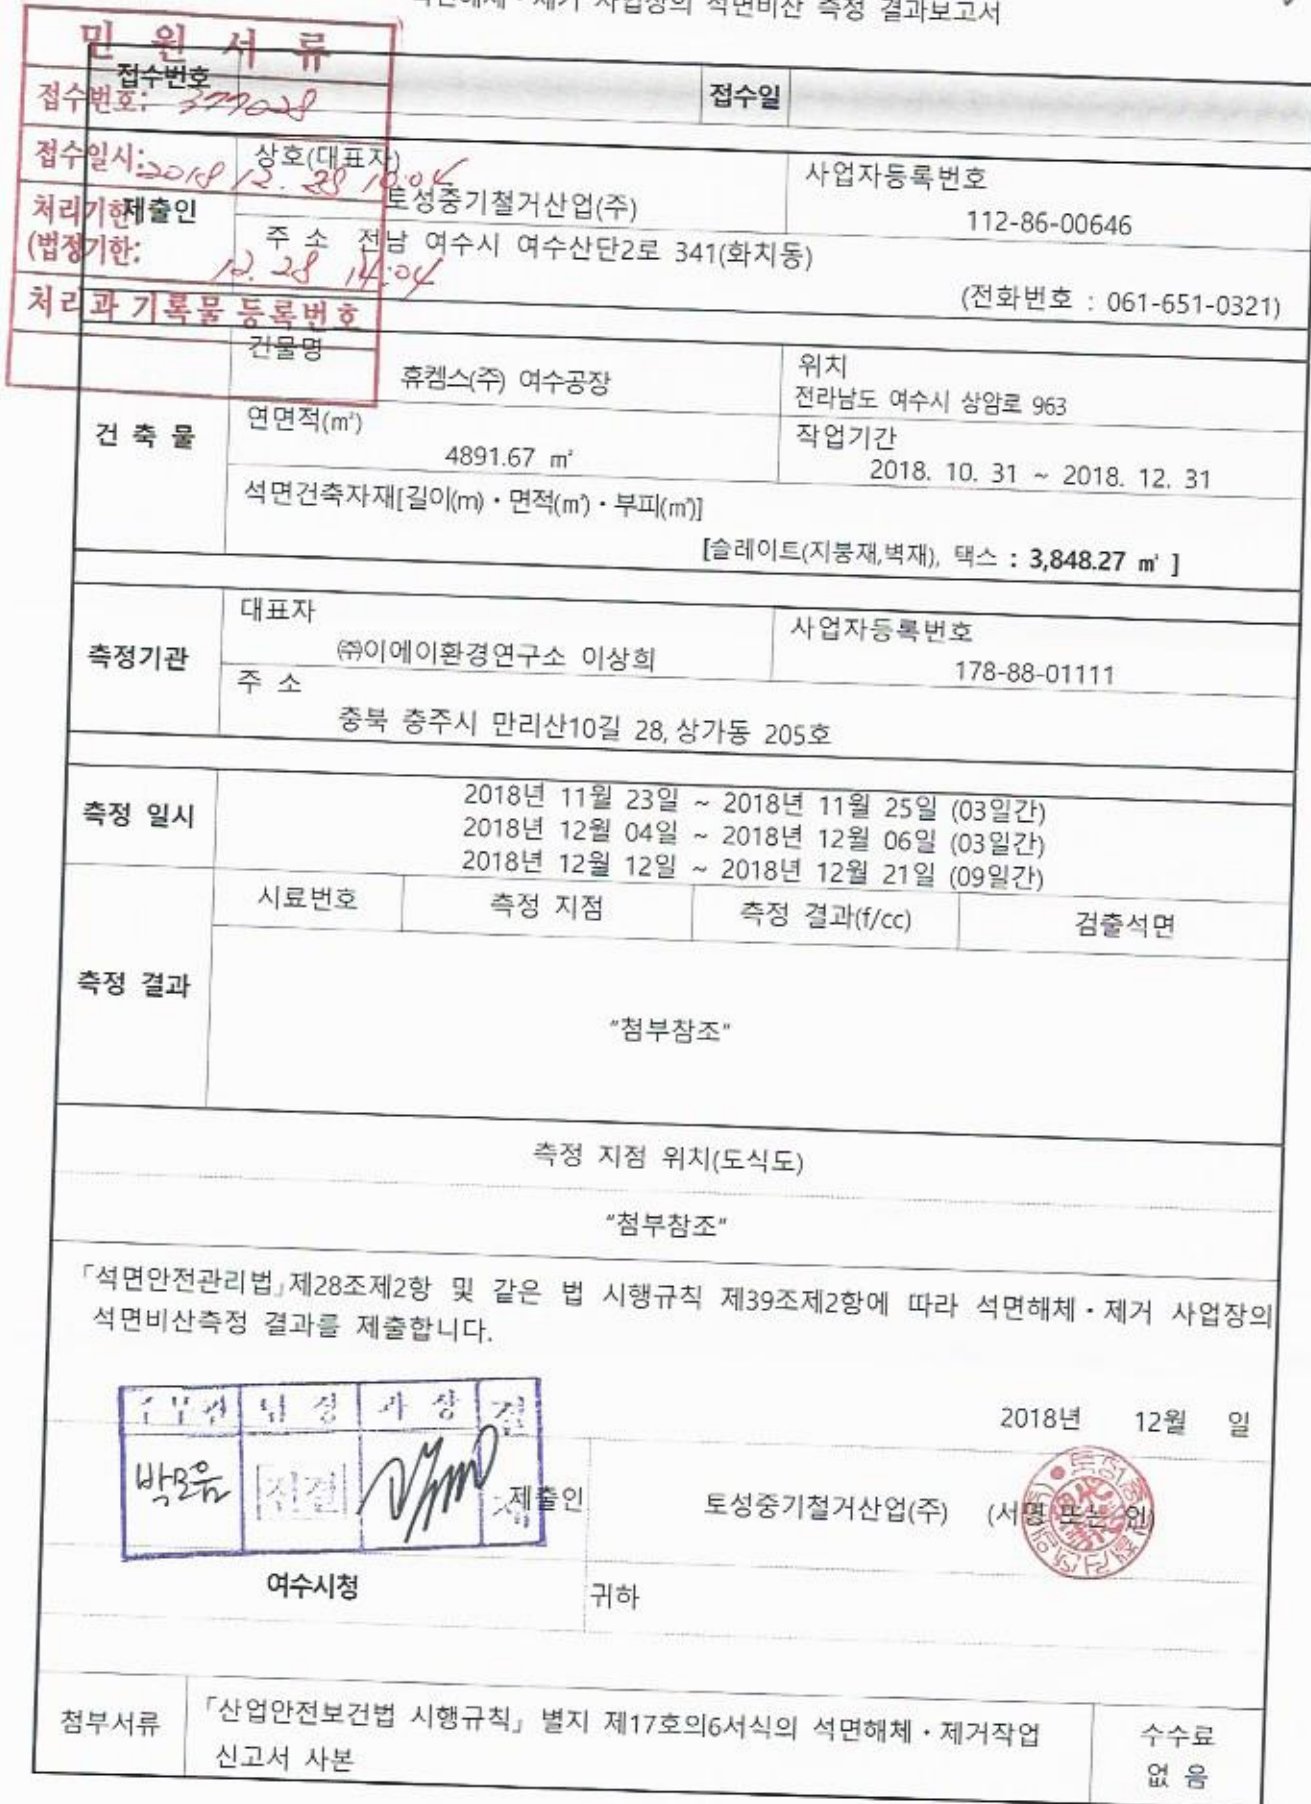 석면해체·제거 사업장의 석면비산 측정 결과보고서
민원서류
접수번호: 377028
접수일시: 2018 12. 28 10:04
처리기한
(법정기한: 12. 28 14:04
처리과 기록물 등록번호
접수번호
접수일
제출인
상호(대표자)
토성중기철거산업(주)
사업자등록번호
112-86-00646
주 소 전남 여수시 여수산단2로 341(화치동)
(전화번호 : 061-651-0321)
건 축 물
건물명
휴켐스(주) 여수공장
위치
전라남도 여수시 상암로 963
연면적(㎡)
4891.67 ㎡
작업기간
2018. 10. 31 ~ 2018. 12. 31
석면건축자재[길이(m)·면적(㎡)·부피(㎥)]
[슬레이트(지붕재,벽재), 택스 : 3,848.27 ㎡ ]
측정기관
대표자
㈜이에이환경연구소 이상희
사업자등록번호
178-88-01111
주 소
충북 충주시 만리산10길 28, 상가동 205호
측정 일시
2018년 11월 23일 ~ 2018년 11월 25일 (03일간)
2018년 12월 04일 ~ 2018년 12월 06일 (03일간)
2018년 12월 12일 ~ 2018년 12월 21일 (09일간)
측정 결과
시료번호 측정 지점 측정 결과(f/cc) 검출석면
"첨부참조"
측정 지점 위치(도식도)
"첨부참조"
「석면안전관리법」제28조제2항 및 같은 법 시행규칙 제39조제2항에 따라 석면해체·제거 사업장의
석면비산측정 결과를 제출합니다.
2018년 12월 일
주무관 팀장 과장 결재
전결
제출인 토성중기철거산업(주) (서명 또는 인)
여수시청 귀하
첨부서류
「산업안전보건법 시행규칙」 별지 제17호의6서식의 석면해체·제거작업
신고서 사본
수수료
없 음